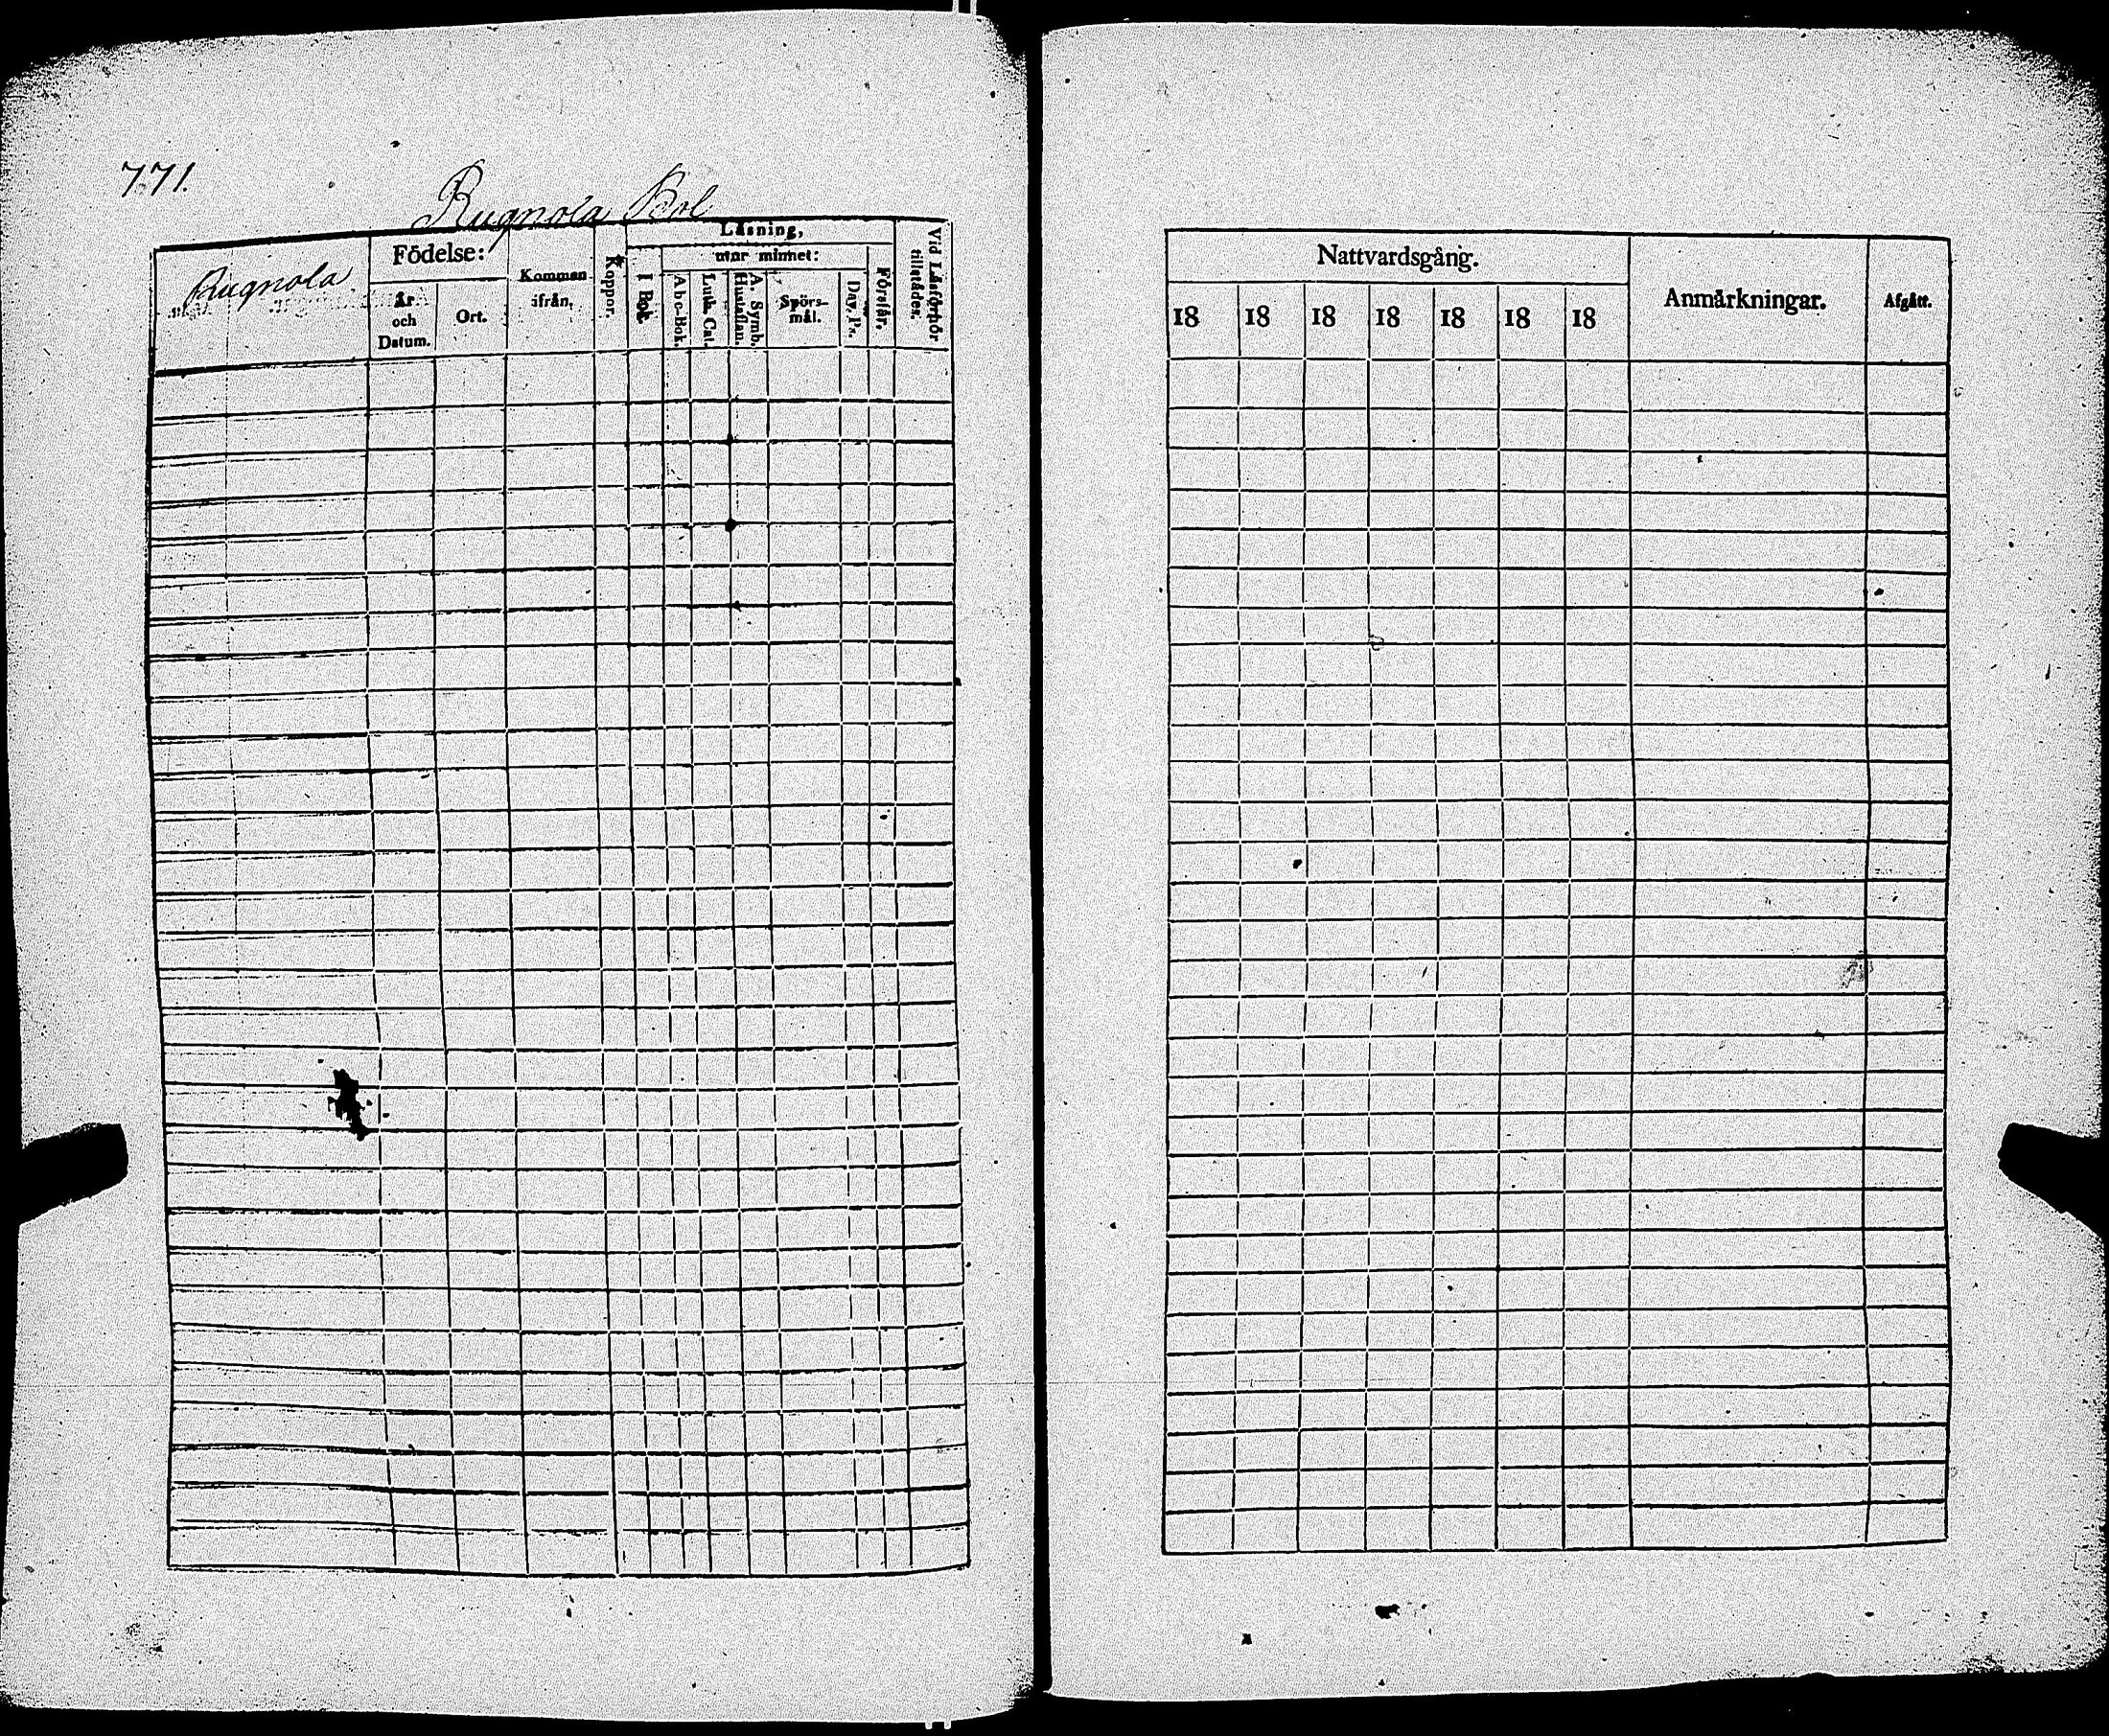 771.
Rugnola Bol
Rugnola
Födelse:
År
och
Datum.
Ort.
Kommen
ifrån.
Koppor.
Läsning,
I Bok.
utur minnet:
Abc-Bok.
Luth. Cat.
Hustaflan.
A. Symb.
Spörs-
mål.
Dav. Ps.
Förstår.
Vid Läsförhör
tillstädes.
Nattvardsgång.
18 18 18 18 18 18 18
Anmärkningar.
Afgått.